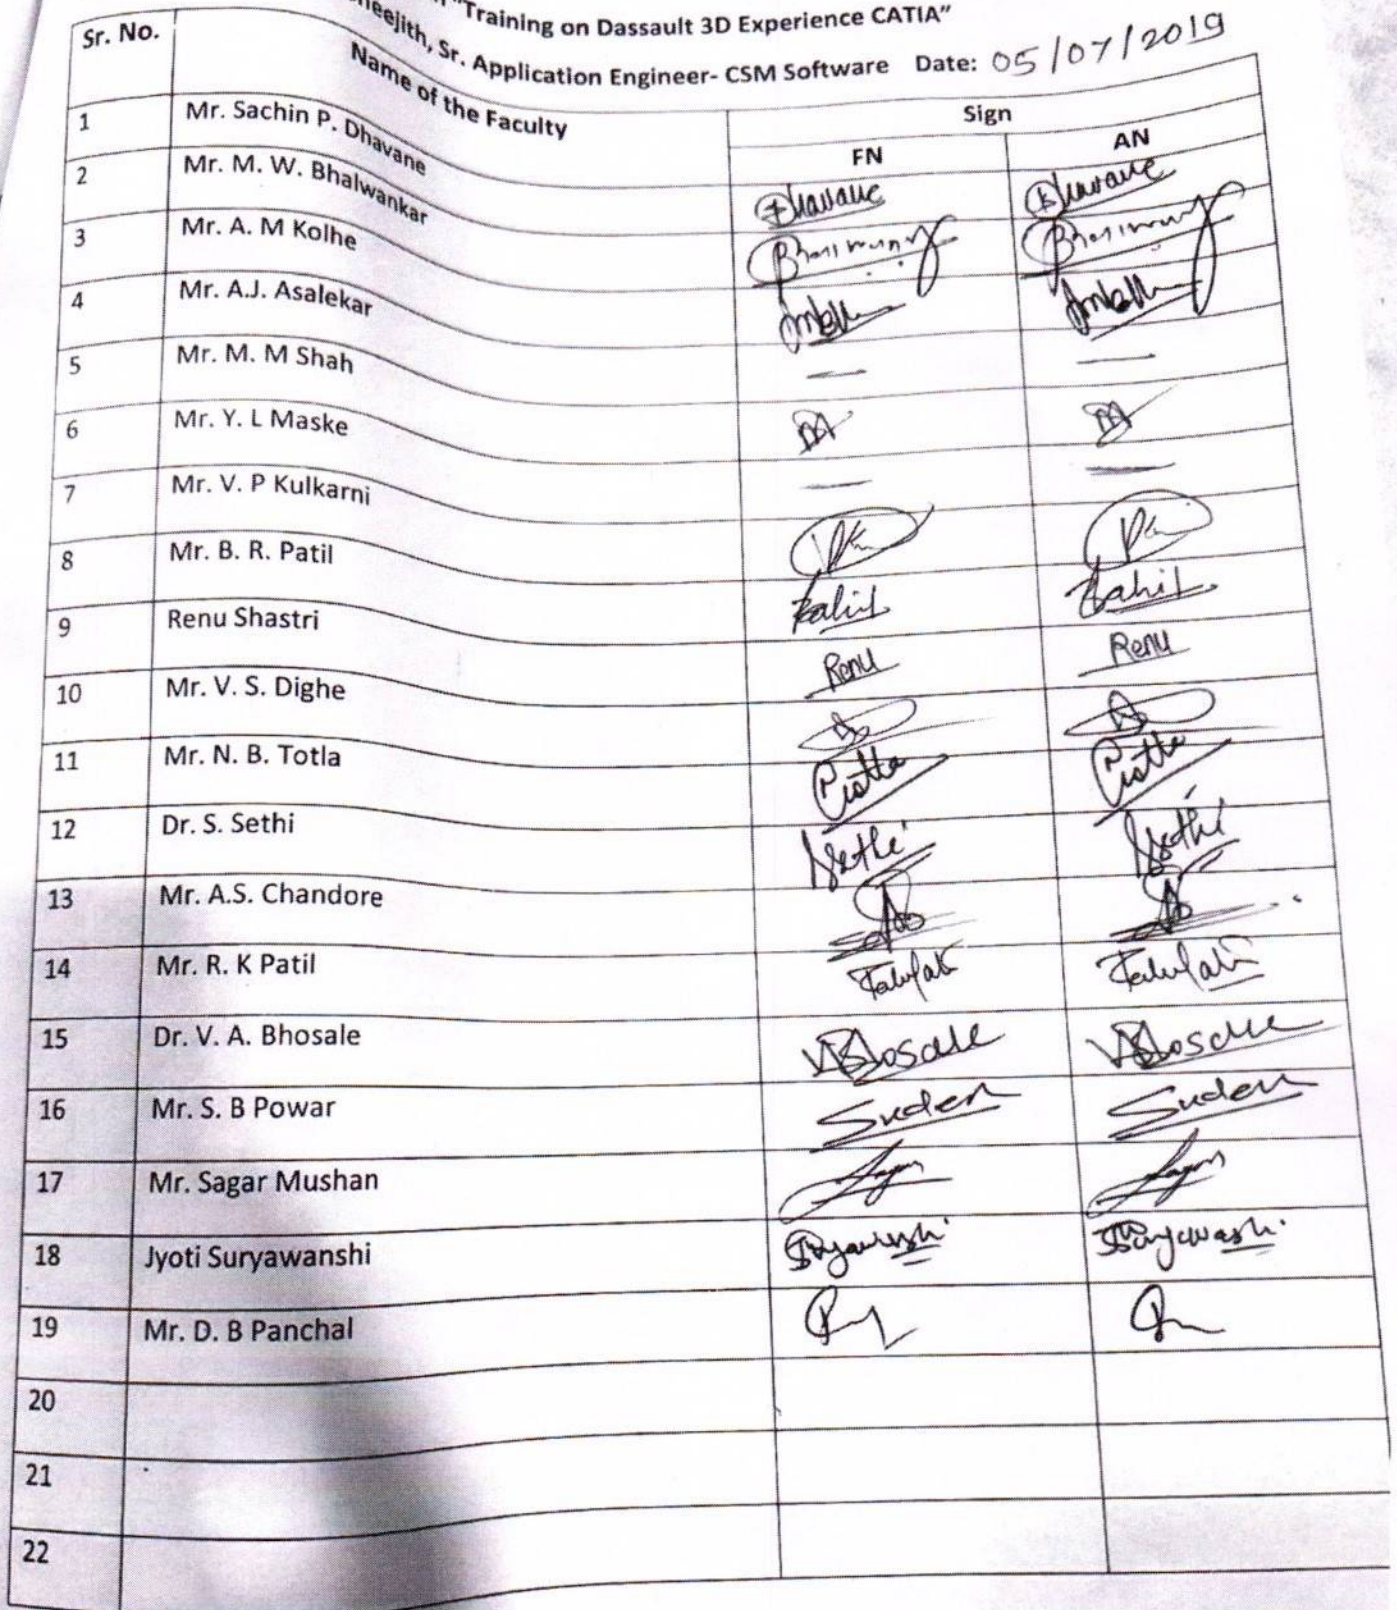 "Training on Dassault 3D Experience CATIA"
Sr. Application Engineer- CSM Software Date: 05/07/2019
Sr. No. Name of the Faculty Sign
FN AN
1 Mr. Sachin P. Dhavane Dhavane Dhavane
2 Mr. M. W. Bhalwankar
3 Mr. A. M Kolhe
4 Mr. A.J. Asalekar — —
5 Mr. M. M Shah
6 Mr. Y. L Maske — —
7 Mr. V. P Kulkarni
8 Mr. B. R. Patil
9 Renu Shastri Renu Renu
10 Mr. V. S. Dighe
11 Mr. N. B. Totla
12 Dr. S. Sethi Sethi Sethi
13 Mr. A.S. Chandore
14 Mr. R. K Patil
15 Dr. V. A. Bhosale VBhosale VBhosale
16 Mr. S. B Powar
17 Mr. Sagar Mushan
18 Jyoti Suryawanshi
19 Mr. D. B Panchal
20
21
22